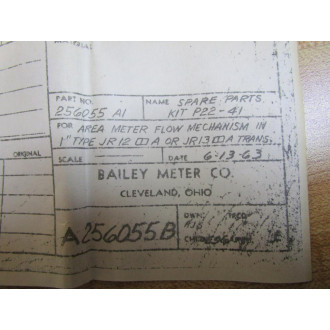 PART NO.
256055 A1
NAME SPARE PARTS
KIT P22-41
FOR AREA METER FLOW MECHANISM IN
1" TYPE JR12 □□ A OR JR13 □□ A TRANS.
ORIGINAL
SCALE
DATE 6-13-63
BAILEY METER CO.
CLEVELAND, OHIO
A256055B